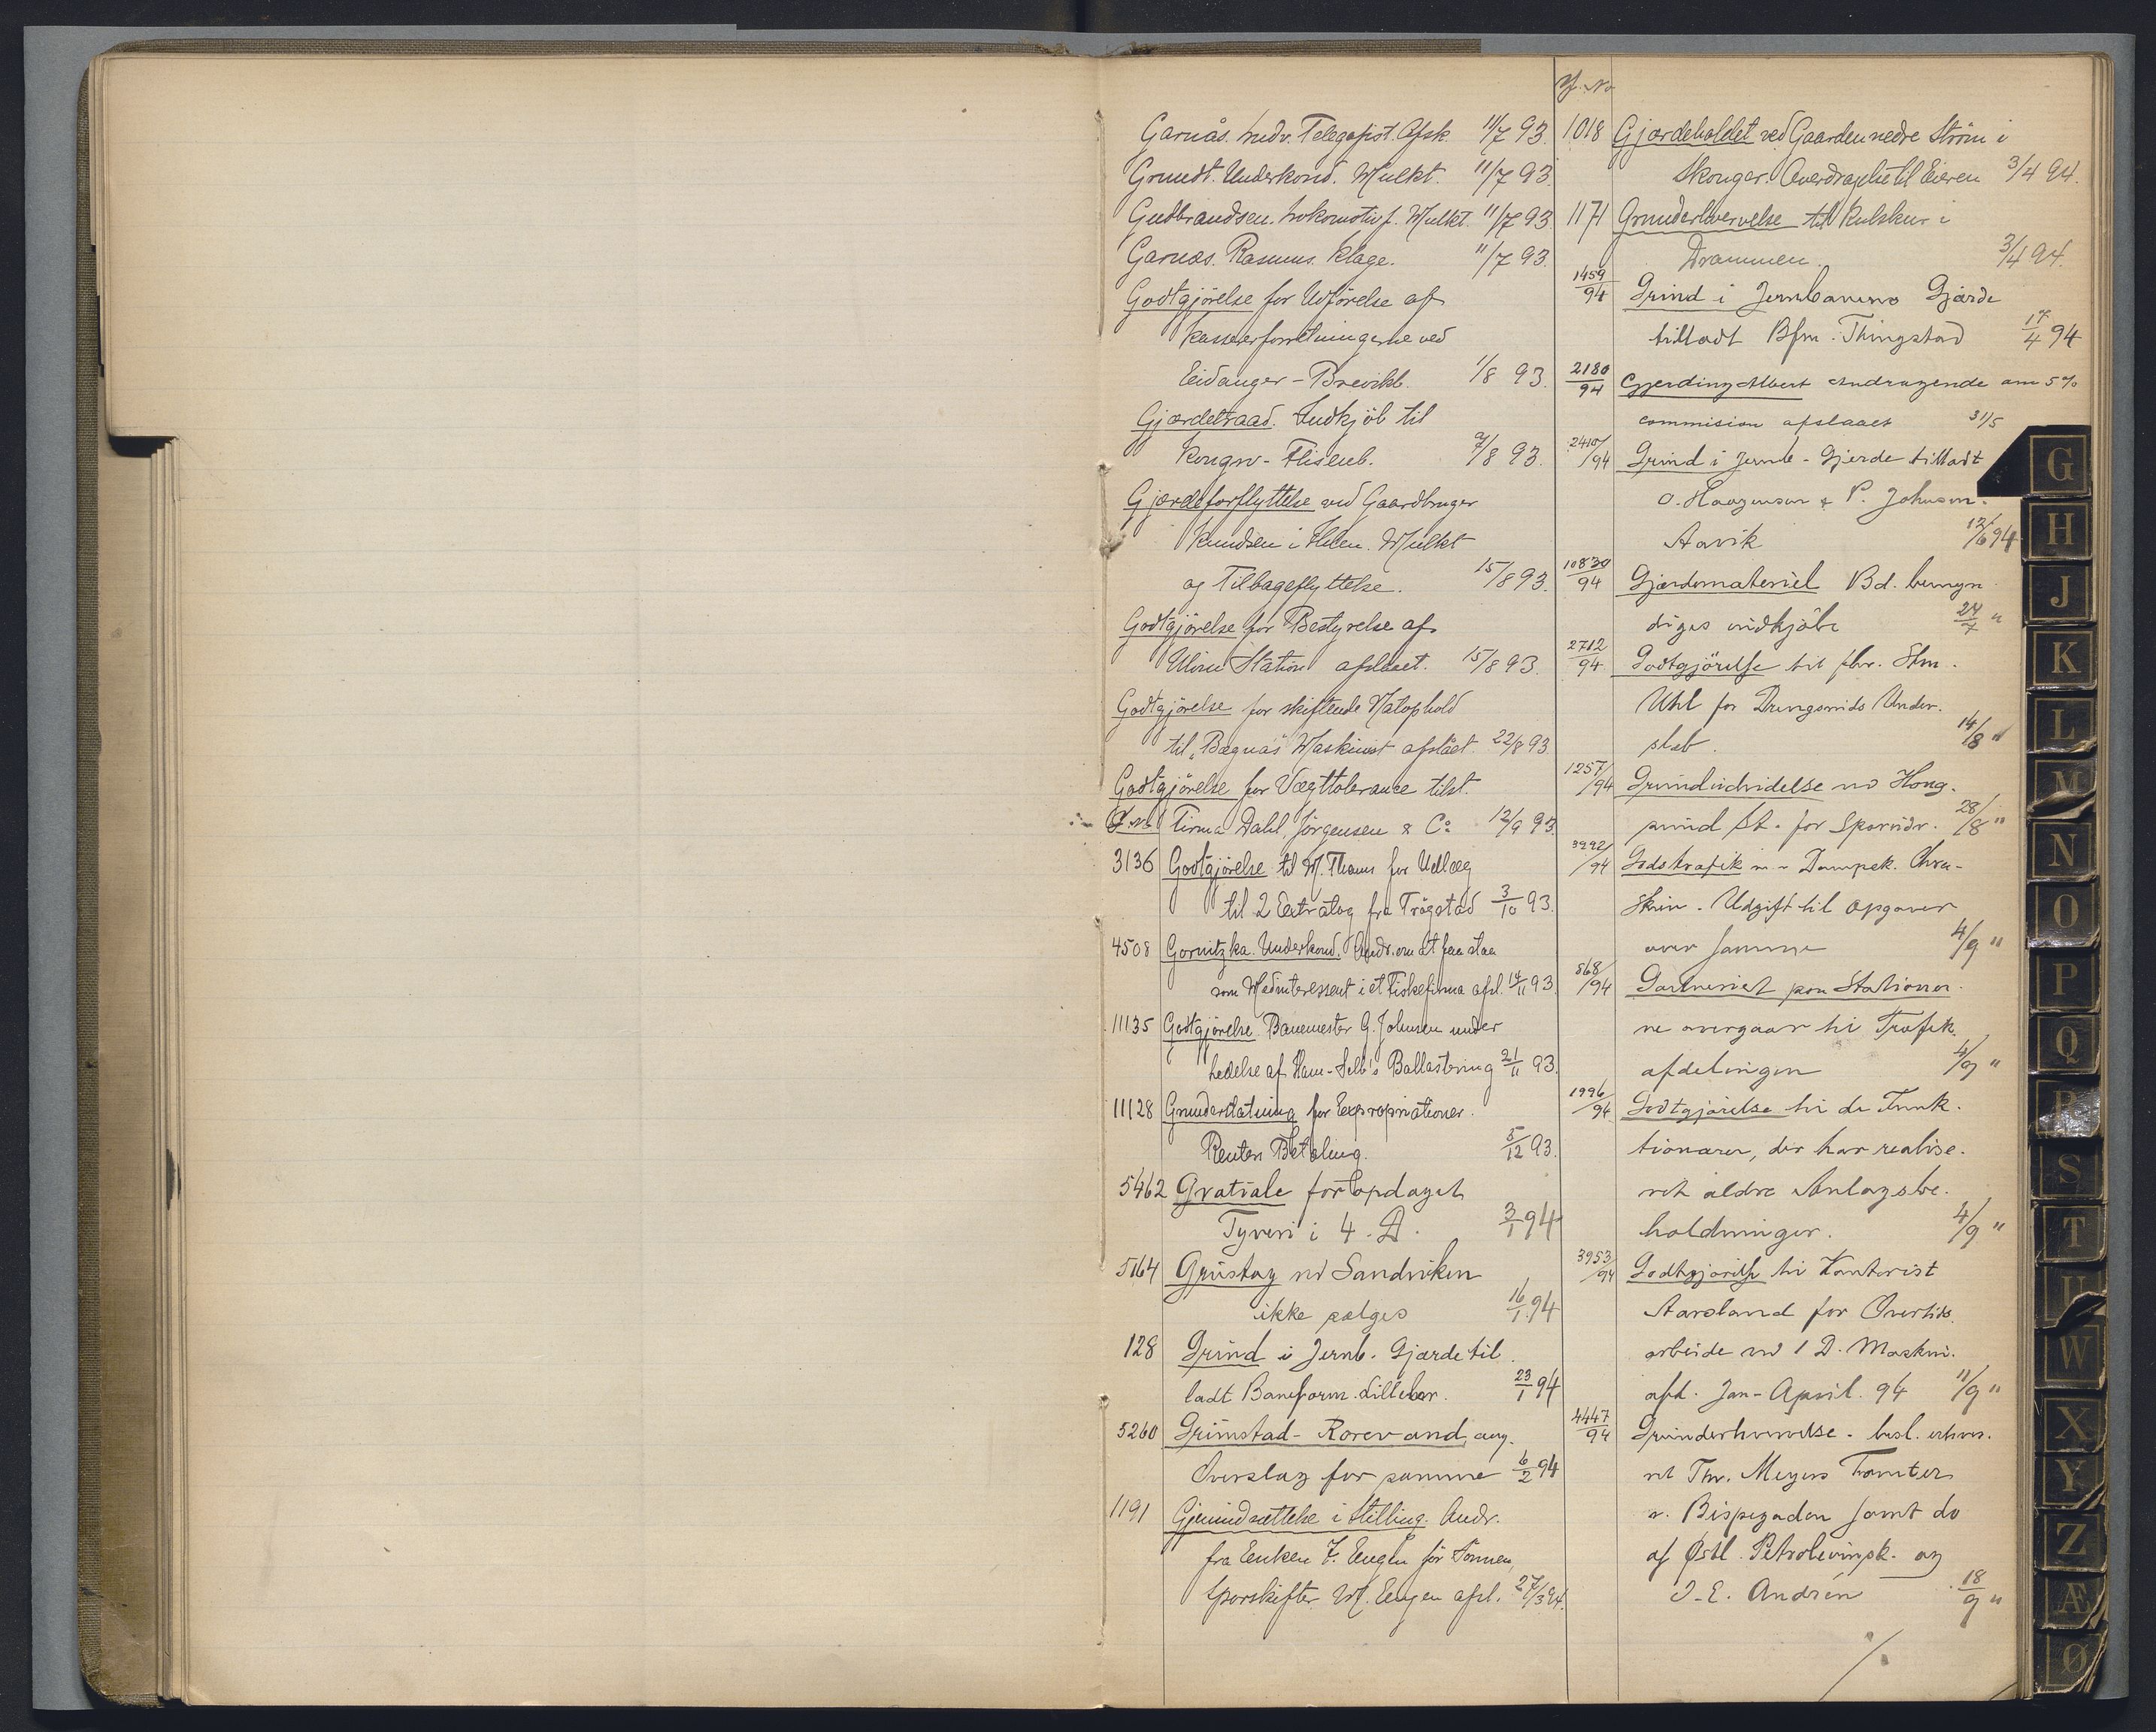 Garnås. midv. Telegafist. Afsk. 11/7 93.
Grundt. Underkond. Mulkt. 11/7 93.
Gudbrandsen. Lokomotivf. Mulkt. 11/7 93.
Garnæs. Rasmus. Klage. 11/7 93.
Godtgjörelse for Udförelse af
Kassererforretningerne ved
Eidanger-Brevikb. 1/8 93.
Gjærdetraad. Indkjöb til
Kongsv-Flisenb. 9/8 93.
Gjærdeforflyttelse ved Gaardbruger
Knudsen i Holen. Mulkt
og Tilbageflyttelse. 15/8 93.
Godtgjörelse for Bestyrelse af
Ulvin Station afslaaet. 15/8 93.
Godtgjörelse for skiftende Natophold
til "Bagnäs" Maskinist afslået. 22/8 93
Godtgjörelse for Vægttolerance tilst.
J.No Firma Dahl, Jörgensen & Co 12/9 93.
3136 Godtgjörelse til M. Thams for Udlæg
til 2 Extratog fra Trögstad 3/10 93.
4508 Gornitzka. Underkond. Andr. om at fun staa
som Medinteressent i et Fiskefirma afsl. 14/11 93.
11135 Godtgjörelse. Banemester G. Johnsen under
Ledelse af Ham-Selb's Ballastering 21/11 93.
11128 Grunderstatning for Expropriationer.
Renters Betaling. 5/12 93.
5462 Gratiale for opdaget
Tyveri i 4. D. 3/1 94
5164 Grustag ved Sandviken
ikke sælges 16/1 94
128 Grind i Jernb. Gjærde til
ladt Baneform. Lillebør. 23/1 94
5260 Grimstad-Rorevand, ang.
Overslag for samme 6/2 94
1191 Gjenindsættelse i Stilling. Andr.
fra Enken J. Engen för Sönnen,
Sporskifter M. Engen afsl. 27/3 94.
J. No
1018 Gjærdeholdet ved Gaarden nedre Ström i
Skouger. Overdragelse til Eieren 3/4 94.
1171 Grunderhvervelse til Kulskur i
Drammen. 3/4 94.
1459/94 Grind i Jernbanens Gjærde
tilladt Bfm. Thingstad 17/4 94
2180/94 Gjerding Albert Andragende om 5%
commision afslaaet 31/5
2410/94 Grind i Jernb-Gjerde tilladt
O. Haagensen & P. Johnsen.
Aavik 12/6 94
10830/94 Gjærdemateriel Bd. bemyn
diges indkjöbe 24/7 "
2712/94 Godtgjörelse til fhv. Stm.
Uhl for Drengsruds Under.
slab. 14/8 "
1257/94 Grundudvidelse ved Hong.
sund St. for Sporudv. 28/8 "
3992/94 Godstrafik m- Dampsk. Chra-
Skien. Udgift til Opgaver
over samme 4/9 "
868/94 Gartneriet paa Stationer.
ne overgaar til Trafik.
afdelingen 4/9 "
1996/94 Godtgjörelse til de Funk.
tionærer, der har realise.
ret ældre Anlægsbe.
holdninger. 4/9 "
3953/94 Godtgjörelse til Kontorist
Aarsland for Overtids
arbeide ved 1 D. Maskin.
afd. Jan-April. 94 11/9 "
4447/94 Grunderhvervelse. besl. erhver.
vet Thv. Meyers Tomter
v. Bispegaden samt do
af Østl. Petroleumsk. og
J. E. Andrén 18/9 "
G
H
J
K
L
M
N
O
P
Q
R
S
T
U
W
X
Y
Z
Æ
Ø